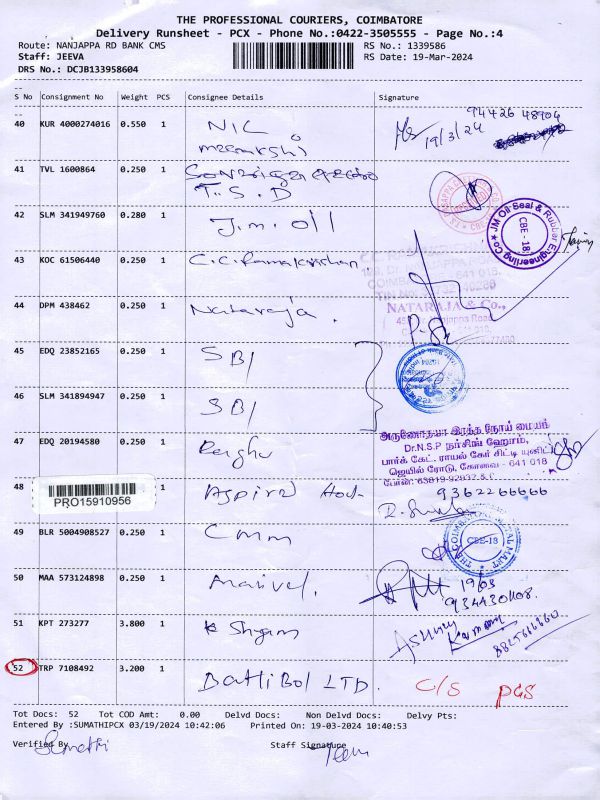 THE PROFESSIONAL COURIERS, COIMBATORE
Delivery Runsheet - PCX - Phone No.:0422-3505555 - Page No.:4
Route: NANJAPPA RD BANK CMS RS No.: 1339586
Staff: JEEVA RS Date: 19-Mar-2024
DRS No.: DCJB133958604
S No Consignment No Weight PCS Consignee Details Signature
40 KUR 4000274016 0.550 1 NIC 94426 48904
meenakshi 19/3/24
41 TVL 1600864 0.250 1
T.S.D
42 SLM 341949760 0.280 1 J.m. oll
JM Oil Seal & Rubber Engineering Co CBE-18
43 KOC 61506440 0.250 1 C.C. Ramakrishnan
44 DPM 438462 0.250 1 Nataraja. NATARAJA & Co.,
45 EDQ 23852165 0.250 1 SBI
46 SLM 341894947 0.250 1 SBI
47 EDQ 20194580 0.250 1 Raghu
அருணோதயா இரத்த நோய் மையம்
Dr.N.S.P நர்சிங் ஹோம்,
பார்க் கேட், ராயல் கேர் சிட்டி யூனிட்
ஜெயில் ரோடு, கோவை - 641 018
48 PRO15910956 9362266666
49 BLR 5004908527 0.250 1 Cmm CBE-18
50 MAA 573124898 0.250 1 19/03
51 KPT 273277 3.800 1 K Shyam
52 TRP 7108492 3.200 1 Batliboi LTD. C/S PGS
Tot Docs: 52 Tot COD Amt: 0.00 Delvd Docs: Non Delvd Docs: Delvy Pts:
Entered By :SUMATHIPCX 03/19/2024 10:42:06 Printed On :19-03-2024 10:40:53
Verified By Sumathi Staff Signature Jeeva